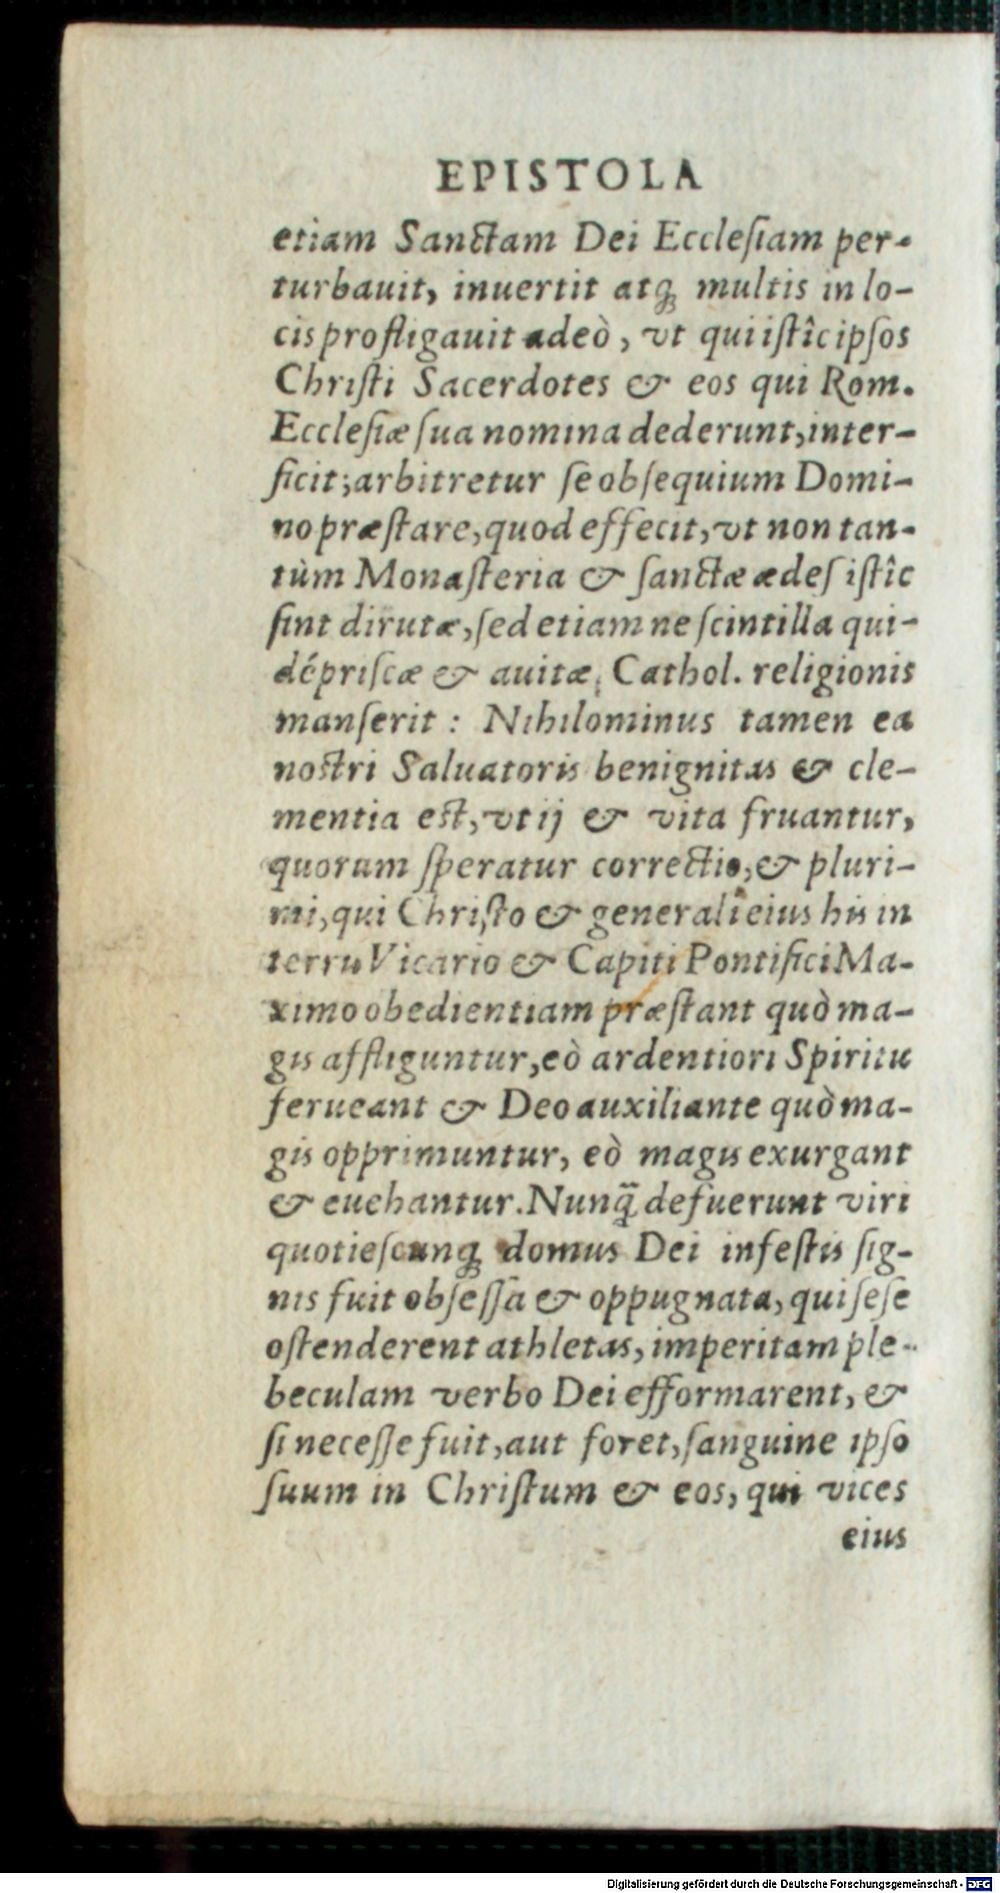 EPISTOLA
etiam Sanctam Dei Eccleſiam per-
turbauit, inuertit atq; multis in lo-
cis profligauit adeò, vt qui iſtîc ipſos
Chriſti Sacerdotes & eos qui Rom.
Eccleſiæ ſua nomina dederunt, inter-
ficit; arbitretur ſe obſequium Domi-
no præſtare, quod effecit, vt non tan-
tùm Monaſteria & ſanctæ ædeſ iſtîc
ſint dirutæ, ſed etiam ne ſcintilla qui-
dé priſcæ & auitæ, Cathol. religionis
manſerit : Nihilominus tamen ea
nostri Saluatoris benignitas & cle-
mentia est, vt ij & vita fruantur,
quorum ſperatur correctio, & pluri-
mi, qui Chriſto & generali eius his in
terris Vicario & Capiti Pontifici Ma-
ximo obedientiam præſtant quò ma-
gis affliguntur, eò ardentiori Spiritu
ferueant & Deo auxiliante quò ma-
gis opprimuntur, eò magis exurgant
& euehantur. Nunq̃ defuerunt viri
quotieſcunq; domus Dei infeſtis ſig-
nis fuit obſeſſa & oppugnata, qui ſeſe
oſtenderent athletas, imperitam ple-
beculam verbo Dei efformarent, &
ſi neceſſe fuit, aut foret, ſanguine ipſo
ſuum in Chriſtum & eos, qui vices
eius
Digitalisierung gefördert durch die Deutsche Forschungsgemeinschaft - DFG